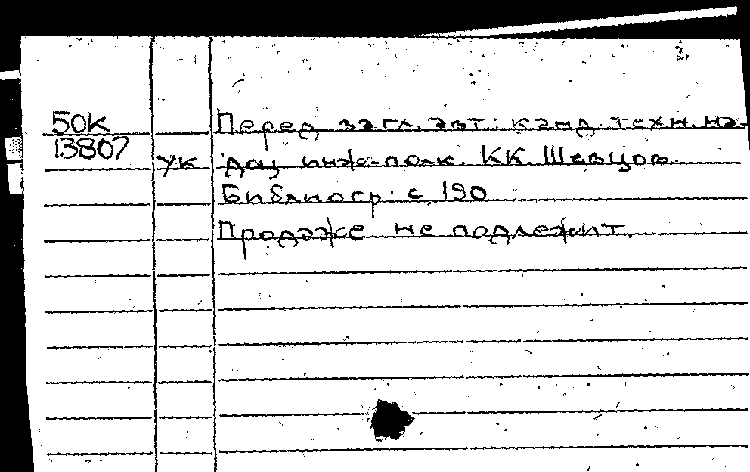 50К
Перед загл. авт.: канд. техн. на-
13807
ук доц. инж.-полк. К К Шевцов.
Библиогр.: с. 190
Продаже не подлежит.